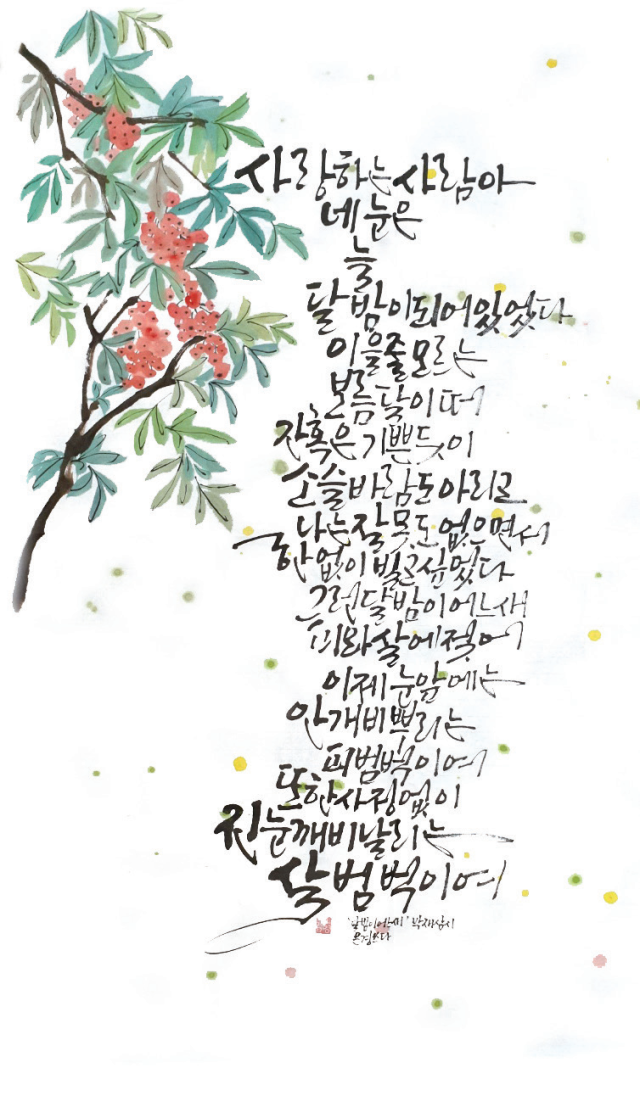 사랑하는 사람아
네 눈은
늘
달밤이 되어 있었다
이울 줄 모르는
보름달이 떠
자혹은 기쁜듯이
소슬바람도 아리고
나는 잘못도 없으면서
한없이 빌고 싶었다
그런 달밤이 어느새
피와 살에 젖어
이제 눈앞에는
안개비 뿌리는
피범벅이여
또한 사정없이
진눈깨비 날리는
살범벅이여
박재삼 시
은경쓰다